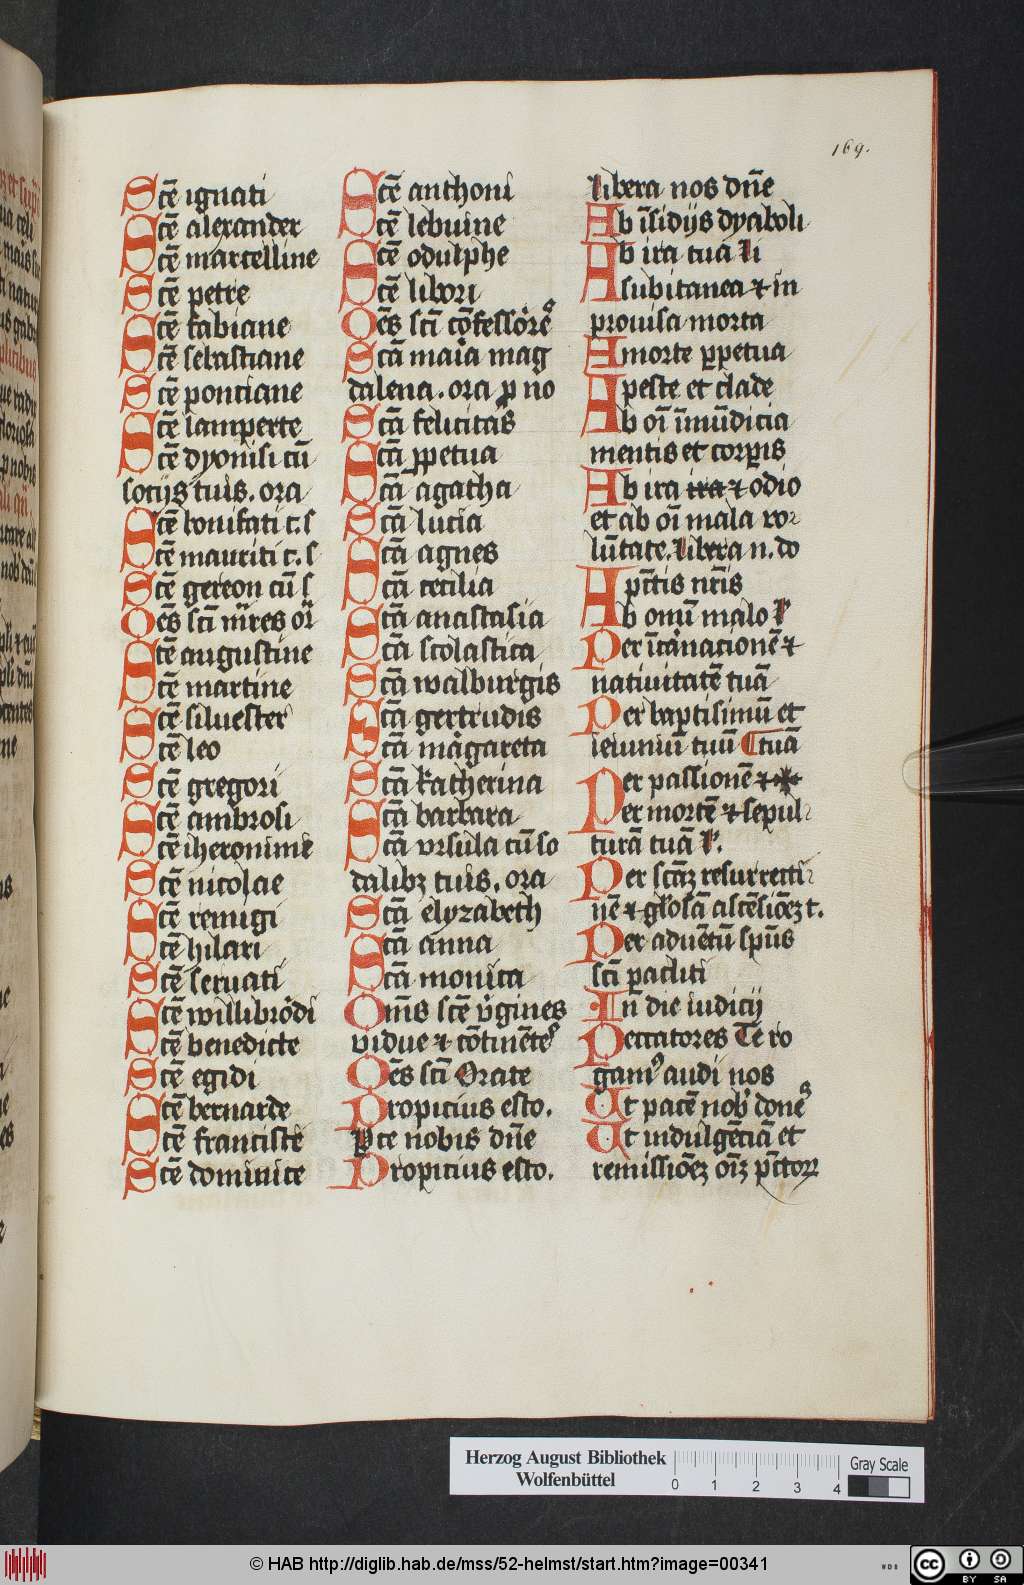 169.
Scē ignati
Scē alexander
Scē marcelline
Scē petre
Scē fabiane
Scē sebastiane
Scē pontiane
Scē lamperte
Scē dyonisi cū
socijs tuis. ora
Scē bonifati c. s
Scē mauriti c. s
Scē gereon cū s
Oēs scī mr̄es or̄
Scē augustine
Scē martine
Scē siluester
Scē leo
Scē gregori
Scē ambrosi
Scē iheronime
Scē nicolae
Scē remigi
Scē hilari
Scē seruati
Scē willibrordi
Scē benedicte
Scē egidi
Scē bernarde
Scē francisce
Scē dominice
Scē anthoni
Scē lebuine
Scē odulphe
Scē libori
Oēs scī cōfessōrēs
Scā maia mag
dalena. ora p no
Scā felicitas
Scā ꝑpetua
Scā agatha
Scā lucia
Scā agnes
Scā cecilia
Scā anastasia
Scā scolastica
Scā walburgis
Scā gertrudis
Scā margareta
Scā katherina
Scā barbara
Scā vrsula cū so
dalibꝫ tuis. ora
Scā elyzabeth
Scā anna
Scā monica
Om̄s scē v̓gines
vidue ⁊ cōtinētes
Oēs scī Orate
Propicius esto.
Pce nobis dn̄e
Propicius esto.
libera nos dn̄e
Ab īsidijs dyaboli
Ab ira tua li
A subitanea ⁊ in
prouisa morta
A morte ꝑpetua
A peste et clade
Ab oī īmūdicia
mentis et corꝑis
Ab ira ira ⁊ odio
et ab oī mala vo
lūtate. libera n. do
A pctīs nr̄is
Ab omī malo l
Per īcarnacionē ⁊
natiuitatē tuā
Per baptisimū et
ieiuniū tuū tuā
Per passionē ⁊
Per mortē ⁊ sepul
turā tuā l.
Per scāꝫ resurrecti
nē ⁊ gl̄osā ascēsiōēꝫ t.
Per aduētū spūs
scī paclīti
In die iudicij
Peccatores Te ro
gamꝰ audi nos
Ut pacē nob̄ donēs
Ut indulgētiā et
remissiōēꝫ oīꝫ pctorꝝ
Herzog August Bibliothek
Wolfenbüttel
0 1 2 3 4
Gray Scale
© HAB http://diglib.hab.de/mss/52-helmst/start.htm?image=00341
cc BY SA